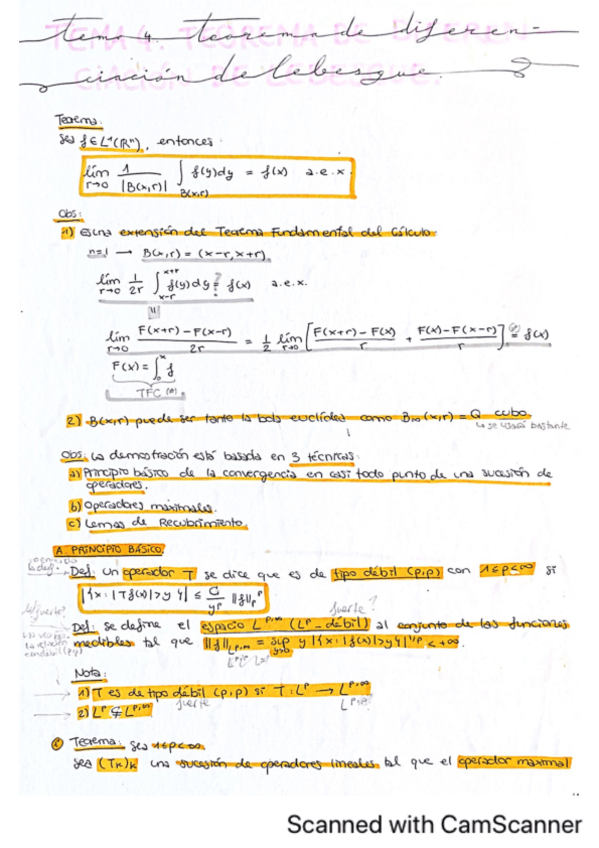 Tema 4. Teorema de diferen-
ciación de Lebesgue.
Teorema:
Sea f ∈ L¹(ℝⁿ), entonces
lim_{r→0} 1/|B(x,r)| ∫_{B(x,r)} f(y)dy = f(x) a.e.x.
Obs:
1) Es una extensión del Teorema Fundamental del Cálculo.
n=1 → B(x,r) = (x-r, x+r)
lim_{r→0} 1/2r ∫_{x-r}^{x+r} f(y)dy =? f(x) a.e.x.
lim_{r→0} F(x+r)-F(x-r)/2r = 1/2 lim_{r→0} [F(x+r)-F(x)/r + F(x)-F(x-r)/r] =? f(x)
F(x) = ∫_0^x f
TFC
2) B(x,r) puede ser tanto la bola euclídea como B_∞(x,r) = Q cubo.
↳ se usará bastante
Obs: La demostración está basada en 3 técnicas:
a) Principio básico de la convergencia en casi todo punto de una sucesión de
operadores.
b) Operadores maximales.
c) Lemas de Recubrimiento.
A. PRINCIPIO BÁSICO.
Def: Un operador T se dice que es de tipo débil (p,p) con 1≤p<∞ si
|{x: |Tf(x)|>y}| ≤ C/y^p ||f||_p^p
fuerte?
Def: Se define el espacio L^{p,∞} (L^p-débil) al conjunto de las funciones
medibles tal que ||f||_{L^{p,∞}} = sup_{y>0} y |{x: |f(x)|>y}|^{1/p} < +∞.
Nota:
1) T es de tipo débil (p,p) si T: L^p → L^{p,∞}
fuerte
2) L^p ⊊ L^{p,∞}
Teorema: Sea 1≤p<∞
Sea (T_k)_k una sucesión de operadores lineales tal que el operador maximal
Scanned with CamScanner